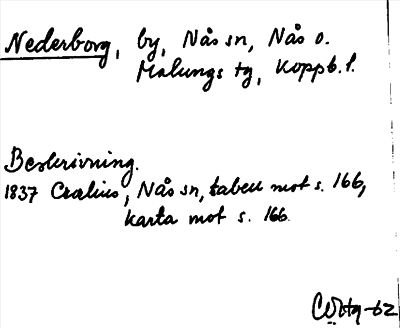 Nederborg, by, Nås sn, Nås o.
Malungs tg, Koppb. l.
Beskrivning.
1837 Crælius, Nås sn, tabell mot s. 166,
karta mot s. 166.
-62